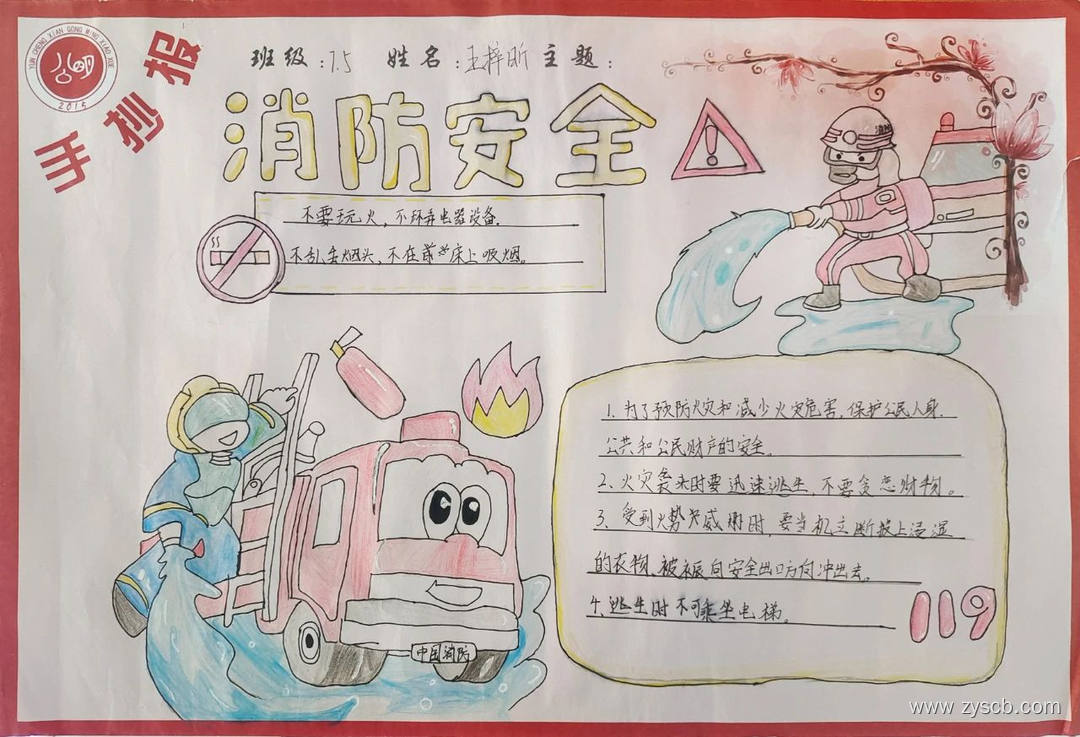 YUN CHENG XIAN GONG MING XIAO XUE
公明
2015
手抄报
班级:7.5 姓名:王梓昕 主题:
消防安全
不要玩火,不环弄电器设备.
不乱丢烟头,不在 床上吸烟。
消防
1.为了预防火灾和减少火灾危害,保护公民人身.
公共和公民财产的安全.
2、火灾袭来时要迅速逃生,不要贪恋财物。
3、受到火势威 时,要当机立断披上浸湿
的衣物、被 向安全出口方向冲出去。
4、逃生时不可乘坐电梯。
119
中国消防
www.zyscb.com